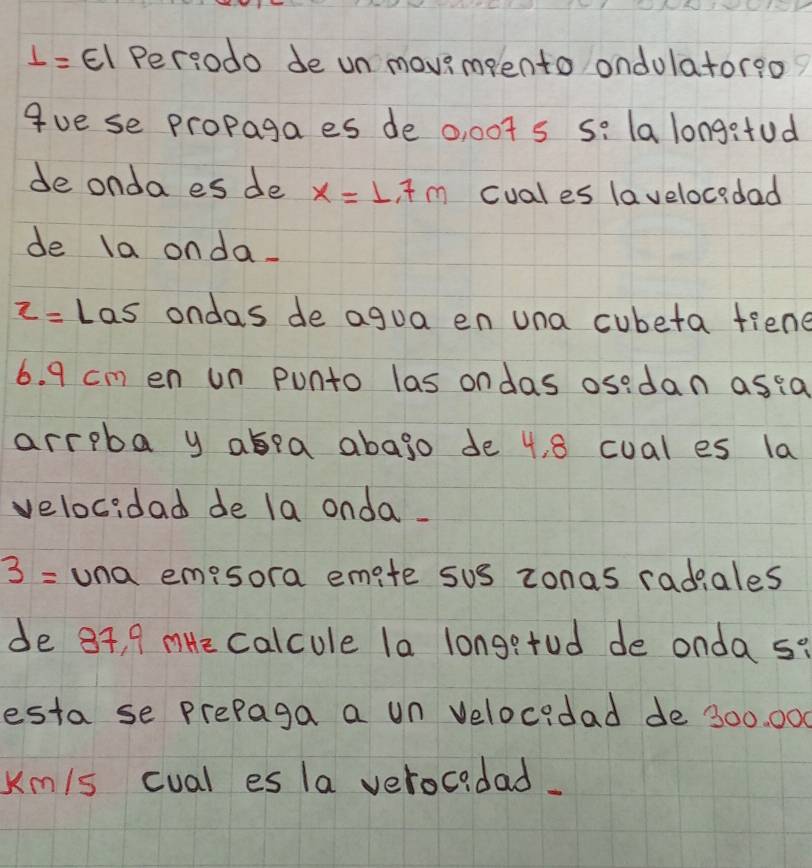 1= El Periodo de un movimiento ondulatorio
que se propaga es de 0,007 s si la longitud
de onda es de x=1,7m cual es la velocidad
de la onda-
2= Las ondas de agua en una cubeta tiene
6.9 cm en un punto las ondas osidan asia
arriba y asia abajo de 4,8 cual es la
velocidad de la onda-
3= una emisora emite sus zonas radiales
de 87,9 mHz calcule la longitud de onda si
esta se prepaga a un velocidad de 300.000
Km/s cual es la verocidad-